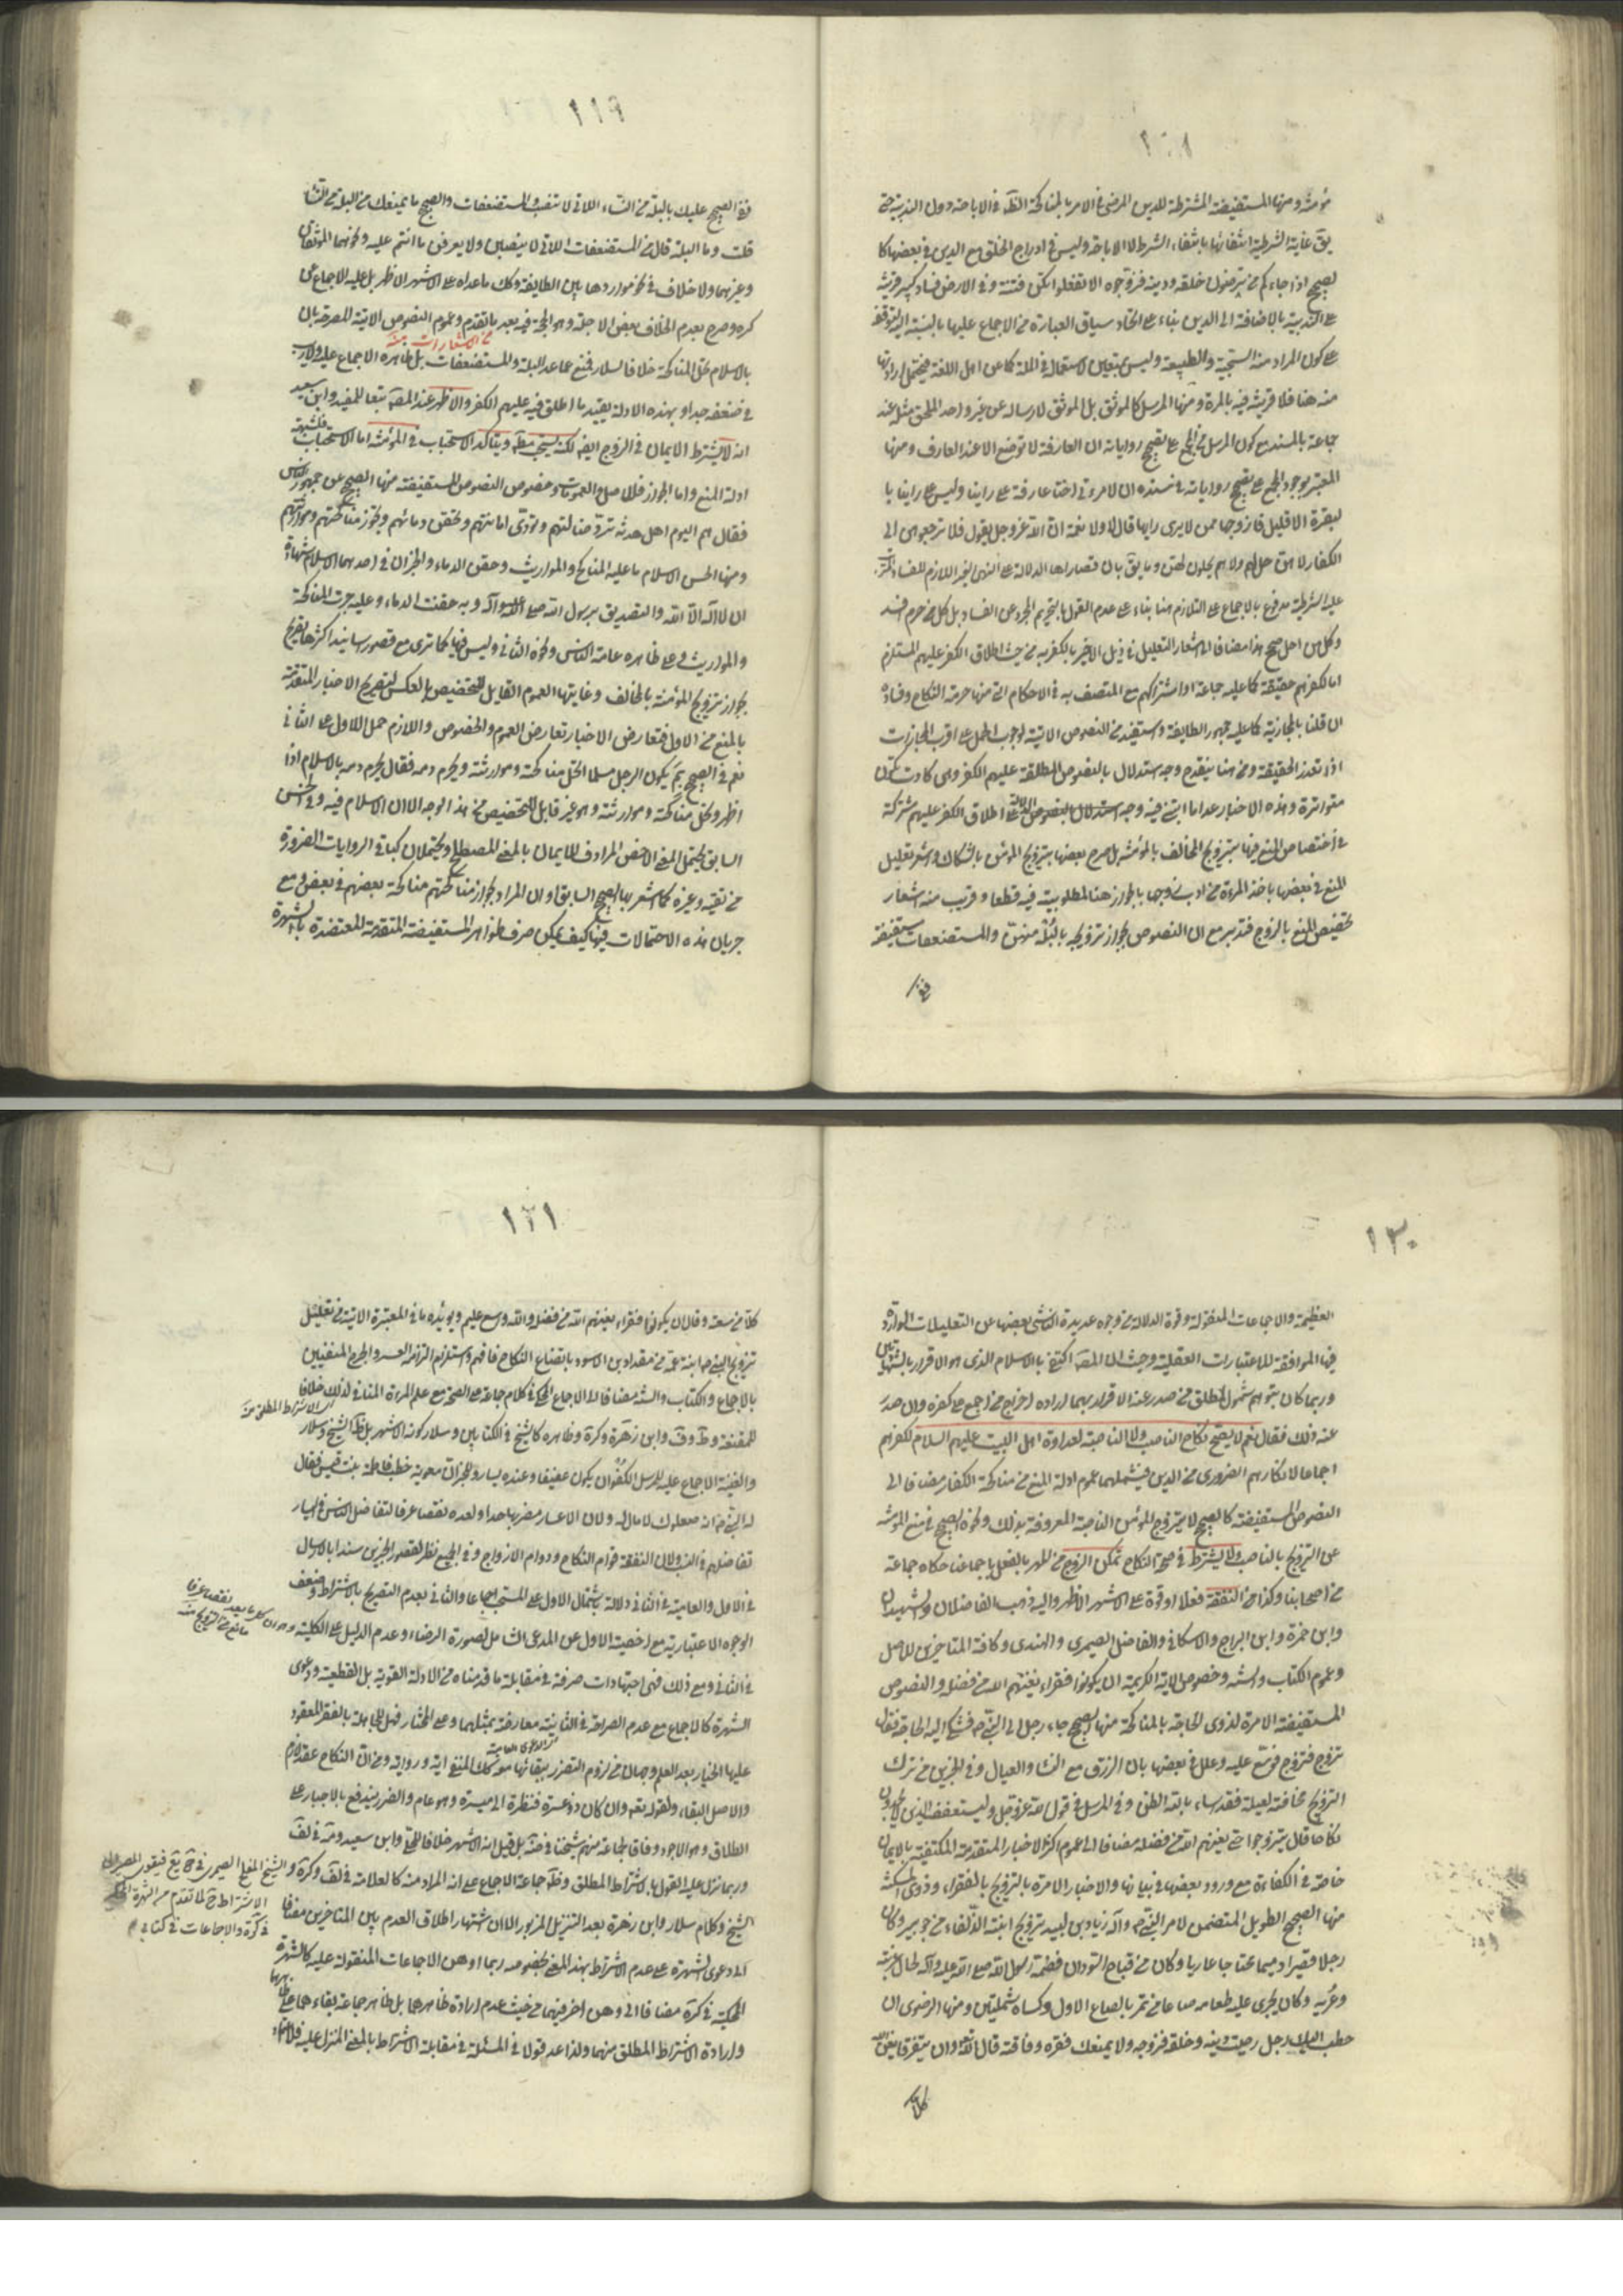 ١٠١
مؤمنة ومنها المستفيضة المشترطة للدين المرضى في الامر بالمناكحة الظ في الاباحة دون الندبية حتى
يق غاية الشرطية انتفائها بانتفاء الشرط لا الاباحة وليس في ادراج الخلق مع الدين في بعضها كا
لصحيح اذا جاءكم من ترضون خلقه ودينه فزوجوه الا تفعلوا تكن فتنة في الارض وفساد كبير قرينة
على الندبية بالاضافة الى الدين بناء على اتحاد سياق العبارة من الاجماع عليها بالنسبة اليه
على كون المراد منه السجية والطبيعة وليس بمتعين لاستعماله في الملة كما عن اهل اللغة فيحتمل ارادتها
منه هنا فلا قرينة فيه بالمرة ومنها المرسل كالموثق بل الموثق لارساله عن غير واحد الملحق مثله عند
جماعة بالمسند مع كون المرسل ممن اجمع على تصحيح رواياته ان العارفة لا توضع الا عند العارف ومنها
المعتبر بوجود المجمع على تصحيح رواياته في سنده ان لامرءتى اختا عارفة على راينا وليس على راينا با
لبصرة الا قليل فازوجها ممن لا يرى رايها قال لا ولا نعمة ان الله عز وجل يقول فلا ترجعوهن الى
الكفار لا هن حل لهم ولا هم يحلون لهن وما يق بان قصاراها الدلالة على النهى الغير اللازم للفساد
عليه الشرطية مدفوع بالاجماع على التلازم هنا بناء على عدم القول بالتحريم المجرد عن الفساد بل كل من حرم افسد
وكل من احل صحح هذا مضافا الى اشعار التعليل في ذيل الاخير بالكفر به من حيث اطلاق الكفر عليهم المستلزم
اما لكفرهم حقيقة كما عليه جماعة او اشتراكهم مع المتصف به في الاحكام التى منها حرمة النكاح وفساده
ان قلنا بالمجازية كما عليه جمهور الطايفة واستفيد من النصوص الاتية لوجوب الحمل على اقرب المجازات
اذا تعذر الحقيقة ومن هنا ينقدح وجه استدلال بالنصوص المطلقة عليهم الكفر وهى كادت تكون
متواترة وهذه الاخبار عدا ما اتضح فيه وجه استدلال بالنصوص الدالة على اطلاق الكفر عليهم مشتركة
في اختصاص المنع فيها بتزويج المخالف بالمؤمنة بل صرح بعضها بتزويج المؤمن بالشكاك واشعر تعليل
المنع في بعضها باخذ المرءة من ادب زوجها بالجواز هنا لمطلوبيته فيه قطعا وقريب منه اشعار
تخصيص المنع بالزوج فتدبر مع ان النصوص بجواز تزويجه بالبله منهن والمستضعفات مستفيضة
ففى
١١٩
ففى الصحيح عليك بالبله من النساء اللاتى لا تنصب والمستضعفات والصحيح ما يمنعك من البله من النساء
قلت وما البله قال من المستضعفات اللاتى لا ينصبن ولا يعرفن ما انتم عليه ونحوهما الموثقان
وغيرهما ولا خلاف في نحو مواردها بين الطايفة وكك ما عداه على الاشهر الاظهر بل عليه الاجماع عن
كره وصرح بعدم الخلاف بعض الاجلة وهو الحجة فيه بعد ما تقدم وعموم النصوص الاتية المصرحة بان
من الاشعارات منه
بالاسلام تحل المناكحة خلافا لسلار فمنع عما عد البله والمستضعفات بل ظاهره الاجماع عليه ولا ريب
في ضعفه جدا وبهذه الادلة يقيد ما اطلق فيه عليهم الكفر والاظهر عند المصه تبعا للمفيد وابن سعيد
انه لا يشترط الايمان في الزوج ايضا لكنه يستحب مطه ويتاكد الاستحباب في المؤمنة اما الاستحباب فلشبهة
ادلة المنع واما الجواز فللاصل والعمومات وخصوص النصوص المستفيضة منها الصحيح عن جمهور الناس
فقال هم اليوم اهل هدنة ترد ضالتهم وتؤدى امانتهم وتحقن دمائهم وتجوز مناكحتهم وموارثتهم
ومنها الحسن الاسلام ما عليه المناكح والمواريث وحقن الدماء والخبران في احدهما الاسلام شهادة
ان لا اله الا الله والتصديق برسول الله صلى الله عليه وآله وبه حقنت الدماء وعليه جرت المناكحة
والمواريث وعلى ظاهره عامة الناس ونحوه الثانى وليس فيها كما ترى مع قصور سانيد اكثرها تصريح
بجواز تزويج المؤمنة بالمخالف وغايتها العموم القابل للتخصيص بالعكس لتصريح الاخبار المتقدمة
بالمنع من الاول فتعارض الاخبار تعارض العموم والخصوص واللازم حمل الاول على الثانى
نعم في الصحيح بم يكون الرجل مسلما تحل مناكحته وموارثته ويحرم دمه فقال يحرم دمه بالاسلام اذا
اظهر وتحل مناكحته وموارثته وهو غير قابل للتخصيص من هذا الوجه الا ان الاسلام فيه وفى الحسن
السابق يحتمل المعنى الاخص المرادف للايمان بالمعنى المصطلح ويحتملان كباقى الروايات الضرورة
من تقية وغيره كما اشعر بها الصحيح السابق او ان المراد بجواز مناكحتهم مناكحة بعضهم في بعض ومع
جريان هذه الاحتمالات فيها كيف يمكن صرف ظواهر المستفيضة المتقدمة المعتضدة بالشهرة
١٢٠
العظيمة والاجماعات المنقولة وقوة الدلالة من وجوه عديدة الناشى بعضها عن التعليلات الواردة
فيها الموافقة للاعتبارات العقلية وحيث ان المصه اكتفى بالاسلام الذى هو الاقرار بالشهادتين
وربما كان يتوهم شمول المطلق من صدر عنه الاقرار بهما اراده اخراج من اجمع على كفره وان صدر
عنه ذلك فقال نعم لا يصح نكاح الناصب ولا الناصبة لعداوة اهل البيت عليهم السلام لكفرهم
اجماعا لانكارهم الضرورى من الدين فيشملهما عموم ادلة المنع من مناكحة الكفار مضافا الى
النصوص المستفيضة كالصحيح لا يتزوج المؤمن الناصبة المعروفة بذلك ونحوه الصحيح في منع المؤمنة
عن التزويج بالناصب ولا يشترط في صحة النكاح تمكن الزوج من المهر بالفعل باجماعنا حكاه جماعة
من اصحابنا وكذا من النفقة فعلا او قوة على الاشهر الاظهر واليه ذهب الفاضلان والشهيدان
وابن حمزة وابن البراج والاسكافى والفاضل الصيمرى والهندى وكافة المتاخرين للاصل
وعموم الكتاب والسنة وخصوص الاية الكريمة ان يكونوا فقراء يغنيهم الله من فضله والنصوص
المستفيضة الامرة لذوى الحاجة بالمناكحة منها الصحيح جاء رجل الى النبى ص فشكا اليه الحاجة فقال
تزوج فتزوج فوسع عليه وعلل في بعضها بان الرزق مع النساء والعيال وفى الخبرين من ترك
التزويج مخافة لعيلة فقد اساء بالله الظن وفى المرسل في قول الله عز وجل وليستعفف الذين لا يجدون
نكاحا قال يتزوجوا حتى يغنيهم الله من فضله مضافا الى عموم اكثر الاخبار المتقدمة المكتفية بالايمان
خاصة في الكفاءة مع ورود بعضها في بيانها والاخبار الامرة بالتزويج بالفقراء وذوى المسكنة
منها الصحيح الطويل المتضمن لامر النبى ص وآله زياد بن لبيد تزويج ابنته الذلفاء من جويبر وكان
رجلا قصيرا دميما محتاجا عاريا وكان من قباح السودان فضمه رسول الله صلى الله عليه وآله لحال غربته
وعريه وكان يجرى عليه طعامه صاعا من تمر بالصاع الاول وكساه شملتين ومنها الرضوى ان
خطب اليك رجل رضيت دينه وخلقه فزوجه ولا يمنعك فقره وفاقته قال الله وان يتفرقا يغن الله
كلا
١٢١
كلا من سعته وقال ان يكونوا فقراء يغنيهم الله من فضله والله واسع عليم ويؤيده ما في المعتبرة الاتية من تعليل
تزويج النبى ص ابنة عمه من مقداد بن الاسود باتضاع النكاح فافهم واستلزام اشتراطه العسر والحرج المنفيين
بالاجماع والكتاب والسنة مضافا الى الاجماع المحكى في كلام جماعة على الصحة مع علم المرءة المنافى لذلك خلافا
الى الاشتراط المطلق منه
للمقنعة وط وف وابن زهرة وكرة وظاهره كالشيخ في الكتابين وسلار كونه الاشهر بل ظ الشيخ وسلار
والغنية الاجماع عليه للمرسل الكفو ان يكون عفيفا وعنده يسار وللخبر ان معوية خطب فاطمة بنت قيس فقال
له النبى ص انه صعلوك لا مال له ولان الاعسار مضر بها جدا ولعده نقصا عرفا لتفاضل الناس في اليسار
تفاضلهم في النسب ولان النفقة قوام النكاح ودوام الازواج وفى الجميع نظر لقصور الخبرين سندا بالارسال
في الاول والعامية في الثانى دلالة بشتمال الاول على المستحب اجماعا والثانى بعدم التصريح بالاشتراط وضعف
الوجوه الاعتبارية مع اخصية الاول عن المدعى الشامل لصورة الرضاء وعدم الدليل على الكلية
وهو ان كل ما يعد نقصا عرفا
مانع من التزويج منه
في الثانى ومع ذلك فهى اجتهادات صرفة في مقابلة ما قدمناه من الادلة القوية بل القطعية ودعوى
الشهرة كالاجماع مع عدم الصراحة في الثانية معارضة بمثليهما وعلى المختار فهل للجاهلة بالفقر المعقود
عليها الخيار بعد العلم وجهان من لزوم التضرر ببقائها معه كك المنفى اية ورواية ومن ان النكاح عقد لازم
والاصل البقاء ولقوله تعه وان كان ذو عسرة فنظرة الى ميسرة وهو عام والضرر يندفع بالاجبار على
الطلاق وهو الاجود وفاقا لجماعة منهم شيخنا في ضه بل قيل انه الاشهر خلافا للحلى وابن سعيد ومه في لف
وربما نزل عليه القول بالاشتراط المطلق وظ جماعة الاجماع على ان المراد منه كالعلامة في لف وكره و
الشيخ المفلح الصيمرى
الاشتراط
في كره والاجماعات في كتابى
الشيخ وكلام سلار وابن زهرة بعد التنزيل المزبور الا ان اشتهار اطلاق العدم بين المتاخرين مضافا
الى دعوى الشهرة على عدم الاشتراط بهذا المعنى بخصوصه ربما اوهن الاجماعات المنقولة عليه كالشهرة
المحكية في كره مضافا الى وهن اخر فيهما من حيث عدم ارادة ظاهرهما بل ظاهر جماعة بقاءهما على ظاهرهما
وارادة الاشتراط المطلق منهما ولذا عد قولا في المسئلة في مقابلة الاشتراط بالمعنى المنزل عليه